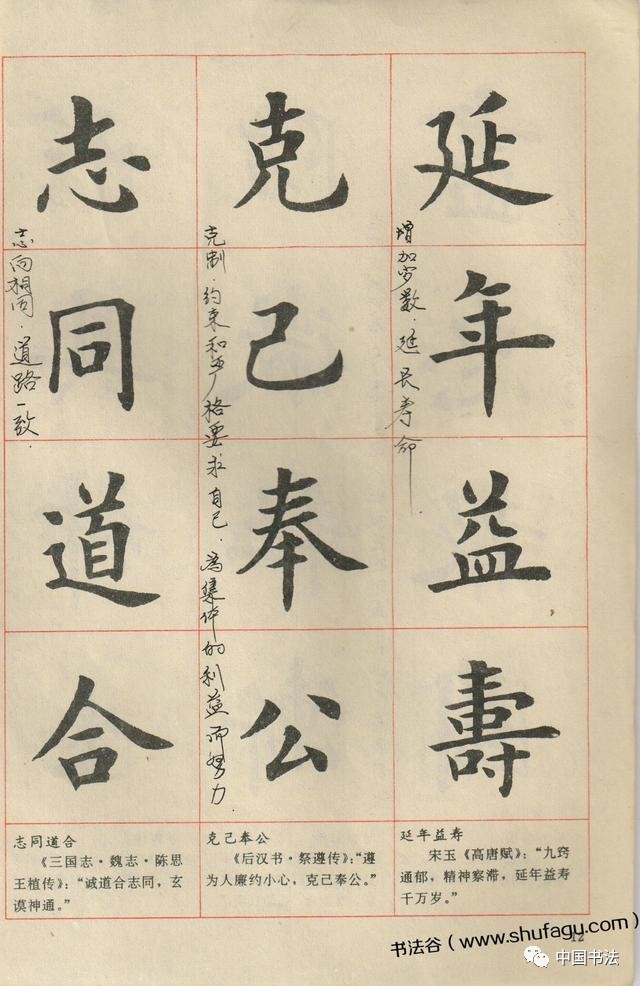 延年益壽
增加岁数.延长寿命
克己奉公
克制.约束和严格要求自己.为集体的利益而努力.
志同道合
志向相同.道路一致.
延年益寿
宋玉《高唐赋》:“九窍
通郁,精神察滞,延年益寿
千万岁。”
克己奉公
《后汉书·祭遵传》:“遵
为人廉约小心,克己奉公。”
志同道合
《三国志·魏志·陈思
王植传》:“诚道合志同,玄
谟神通。”
12
书法谷(www.shufagu.com
中国书法